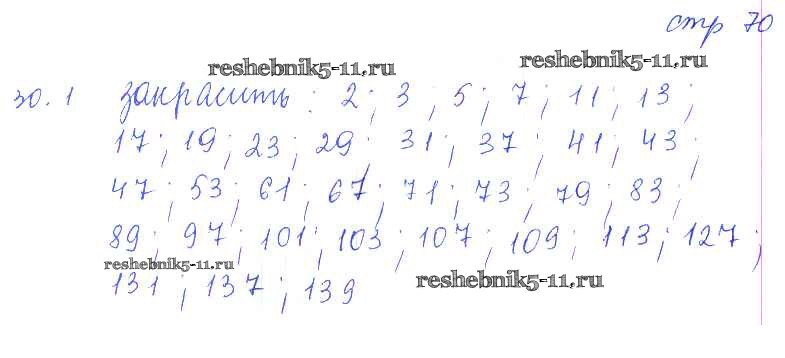 стр 70
reshebnik5-11.ru
reshebnik5-11.ru
30.1 закрасить: 2; 3; 5; 7; 11; 13;
17; 19; 23; 29; 31; 37; 41; 43;
47; 53; 61; 67; 71; 73; 79; 83;
89; 97; 101; 103; 107; 109; 113; 127;
reshebnik5-11.ru
131; 137; 139
reshebnik5-11.ru